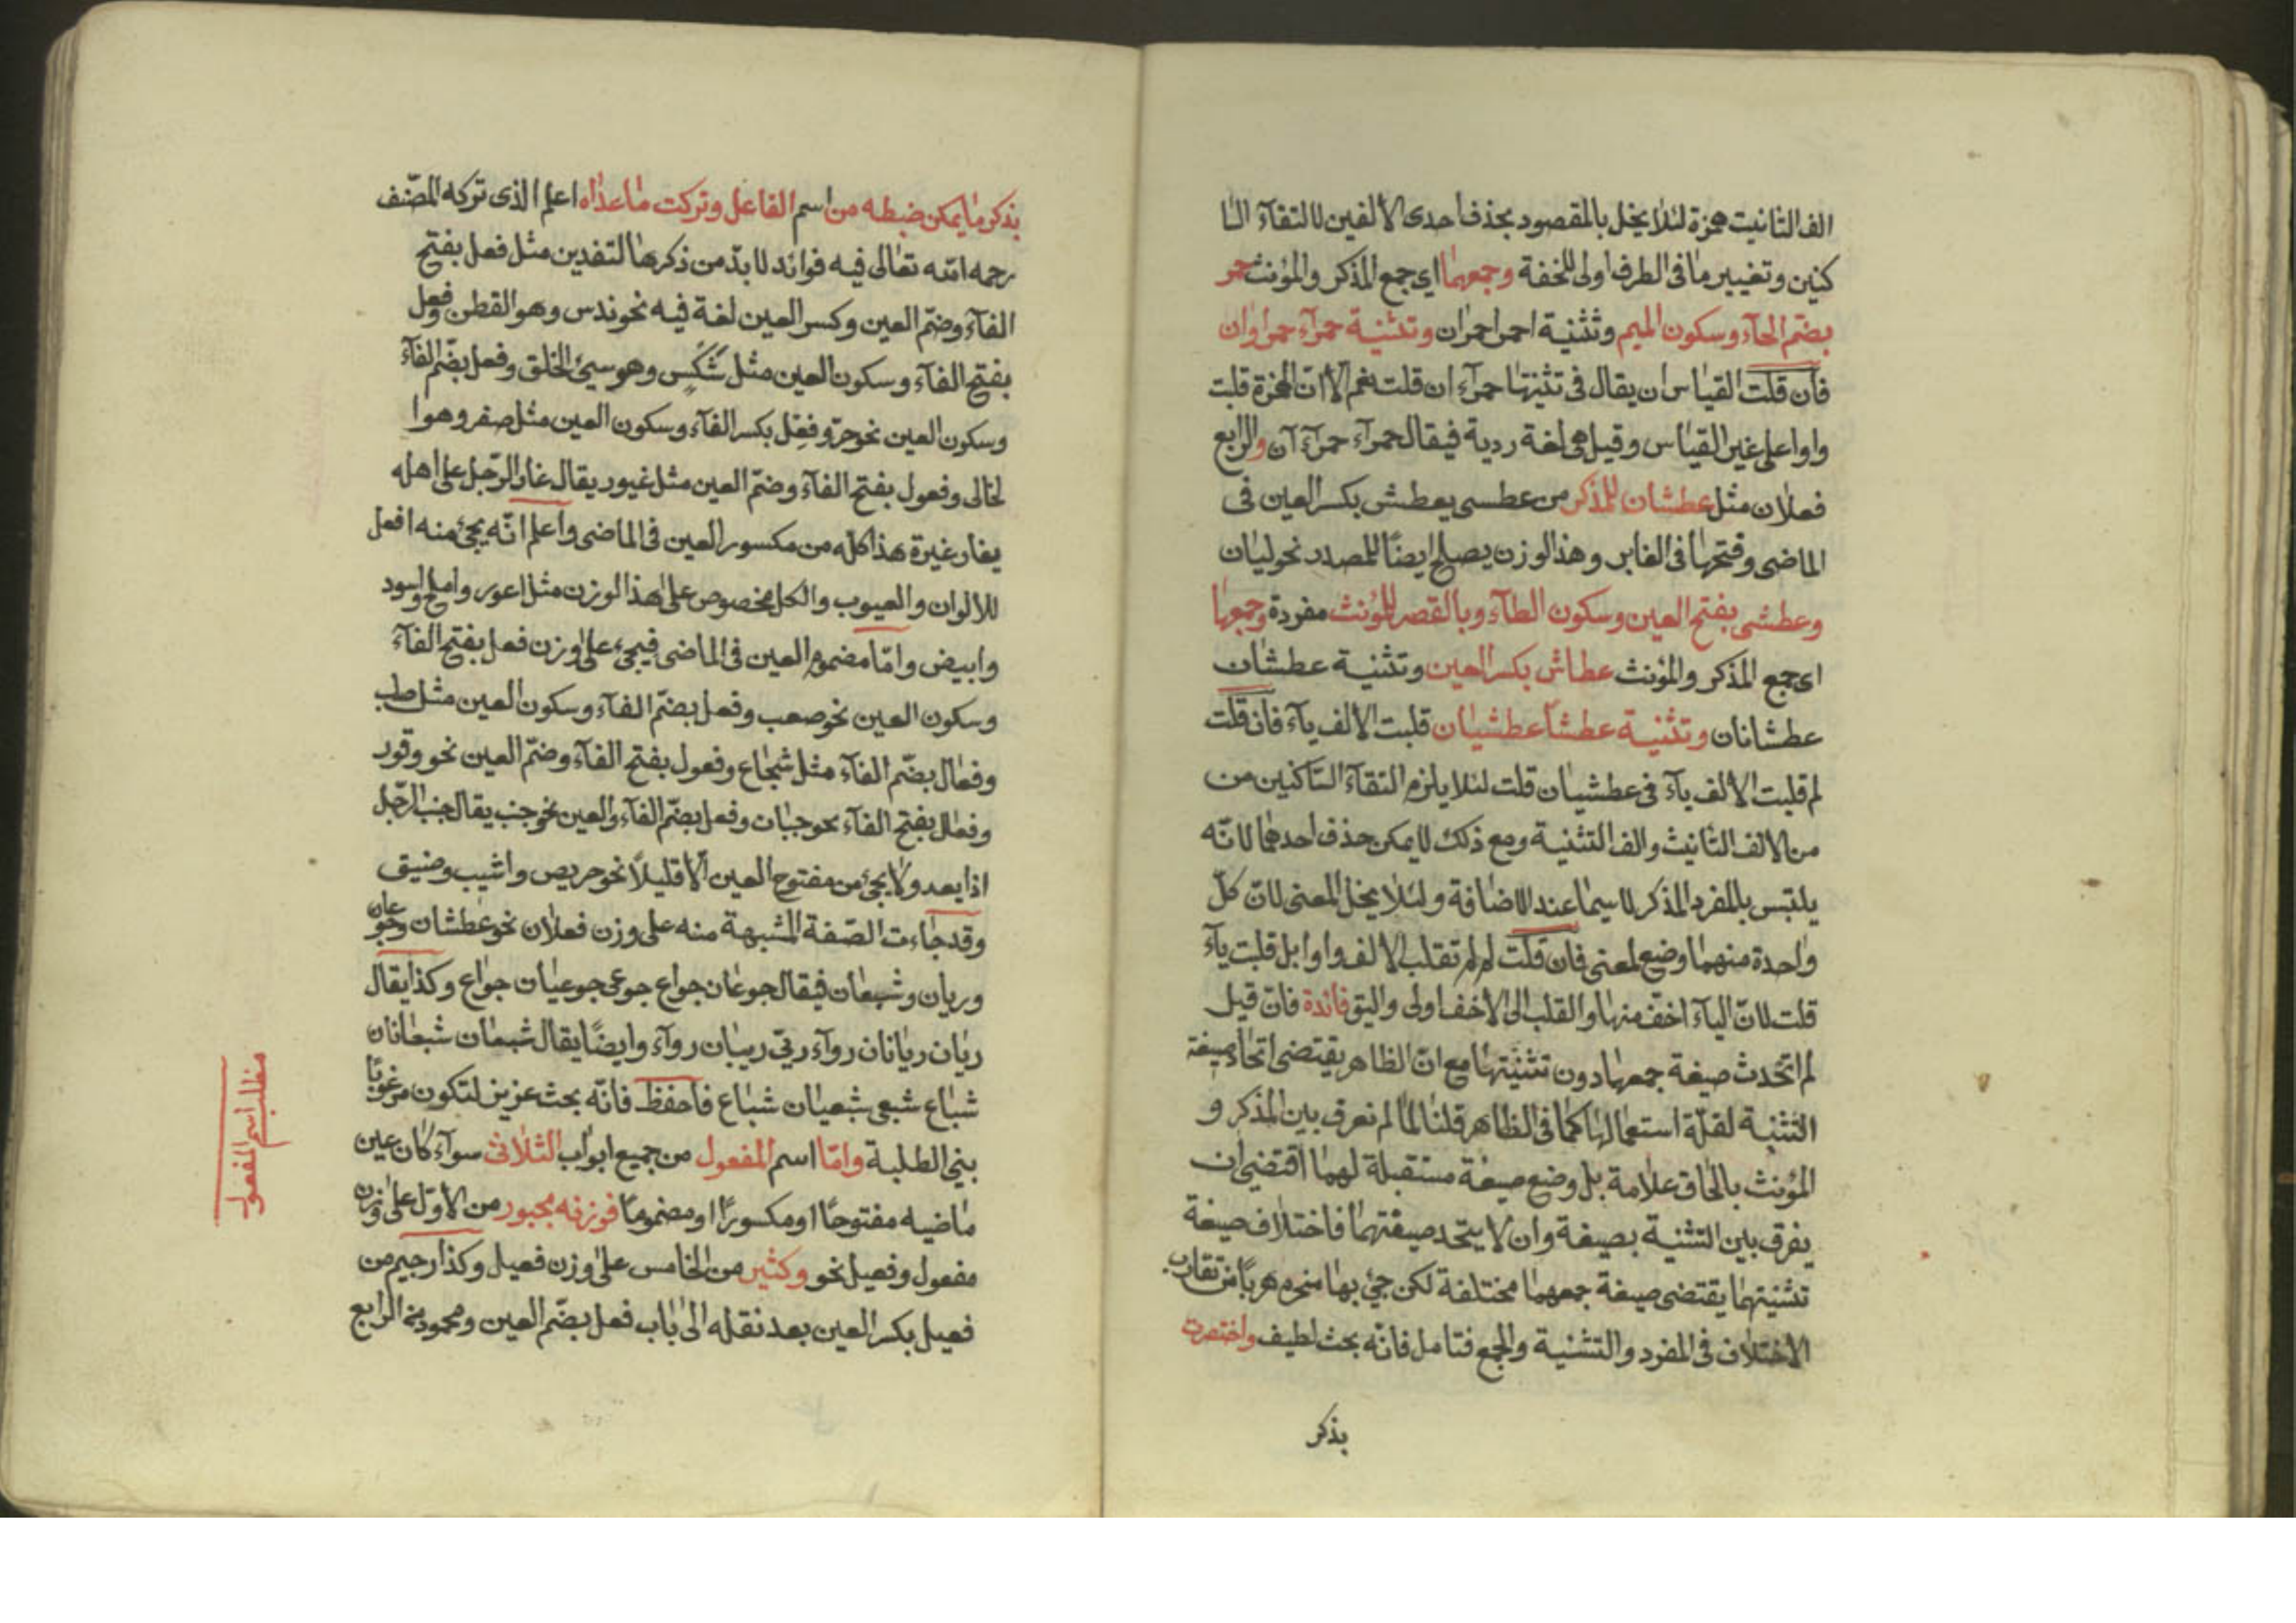 الف التانيت همزة لئلا يخل بالمقصود بحذف احدى الألفين لالتقآء السا
كنين وتغيير ما في الطرف اولى للخفة وجمعهما اي جمع المذكر والمؤنث حمر
بضم الحآء وسكون الميم وتثنية احمر احمران وتثنية حمرآء حمراوان
فان قلت القياس ان يقال في تثنيتها حمرآء ان قلت نعم الا ان الهمزة قلبت
واوا على غير القياس وقيل هي لغة ردية فيقال حمرآء حمرآءآن والرابع
فعلان مثل عطشان للمذكر من عطس يعطش بكسر العين فى
الماضى وفتحها فى الغابر وهذ الوزن يصلح ايضًا للمصدر نحو ليان
وعطشى بفتح العين وسكون الطآء وبالقصر للمؤنث مفردة وجمعها
اى جمع المذكر والمؤنث عطاش بكسر العين وتثنية عطشان
عطشانان وتثنية عطشا عطشيان قلبت الألف يآء فان قلت
لم قلبت الألف يآء فى عطشيان قلت لئلا يلزم التقآء الساكنين من
من الالف التانيث والف التثنية ومع ذلك لا يمكن حذف احدهما لانّه
يلتبس بالمفرد المذكر لا سيما عند الاضافة ولئلا يخل المعنى لانّ كلّ
واحدة منهما وضع لمعنى فان قلت لم لم تقلب الالف واوا بل قلبت يآء
قلت لانّ اليآء اخفّ منها والقلب الى الأخف اولى واليق فائدة فان قيل
لم اتّحدث صيغة جمعها دون تثنيتها مع انّ الظاهر يقتضى اتحاد صيغة
التثنية لقلّة استعمالها كما فى الظاهر قلنا لمّا لم نعرق بين المذكر و
المؤنث بالحاق علامة بل وضع صيغة مستقبلة لهما اقتضى ان
يفرق بين التثنية بصيغة وان لا يتحد صيغتهما فاختلاف صيغة
تثنيتهما يقتضى صيغة جمعهما مختلفة لكن جئ بها منحرم هربًا من تقارب
الاختلاف فى المفرد والتثنية والجمع فتامل فانّه بحث لطيف واختصرت
بذكر
بذكر ما يمكن ضبطه من اسم الفاعل وتركت ما عداه اعلم الذى تركه المصنّف
رحمه الله تعالى فيه فوائد لا بدّ من ذكرها التفدين مثل فعل بفتح
الفآء وضمّ العين وكسر العين لغة فيه نحو ندس وهو القطن وفعل
بفتح الفآء وسكون العين مثل شكس وهو سيئ الخلق وفعل بضمّ الفآء
وسكون العين نحو حرّ وفعل بكسر الفآء وسكون العين مثل صفر وهو ا
لخالى وفعول بفتح الفآء وضمّ العين مثل غيور يقال غار الرّجل على اهله
يغار غيرة هذا كله من مكسور العين فى الماضى واعلم انّه يجئ منه افعل
للالوان والعيوب والكل مخصوص على هذا الوزن مثل اعور واملح واسود
وابيض وامّا مضموم العين فى الماضى فيجىء على وزن فعل بفتح الفآء
وسكون العين نحو صعب وفعل بضمّ الفآء وسكون العين مثل صلب
وفعال بضمّ الفآء مثل شجاع وفعول بفتح الفآء وضمّ العين نحو وقور
وفعال بفتح الفآء نحو جبان وفعل بضمّ الفآء والعين نحو جنب يقال جنب الرّجل
اذا يعد ولا يجئ من مفتوح العين الّا قليلاً نحو حريص واشيب وضيق
وقد جاءت الصّفة المشبهة منه على وزن فعلان نحو عطشان وجوعان
وريان وشبعان فيقال جوعان جواع جوعى جوعيان جواع وكذا يقال
ريّان ريانان روآء ريّى رييان روآء وايضًا يقال شبعان شبعانان
شباع شبعى شبعيان شباع فاحفظ فانّه بحث عزيز لتكون مرغوبًا
بنى الطلبة وامّا اسم المفعول من جميع ابواب الثلاثى سوآء كان عين
ماضيه مفتوحًا او مكسورًا او مضمومًا فوزنه مجبور من الاوّل على وزن
مفعول وفعيل نحو وكثير من الخامس على وزن فعيل وكذا رجيم من
فعيل بكسر العين بعد نقله الى باب فعل بضمّ العين ومحمود من الرابع
مطلب اسم المفعول